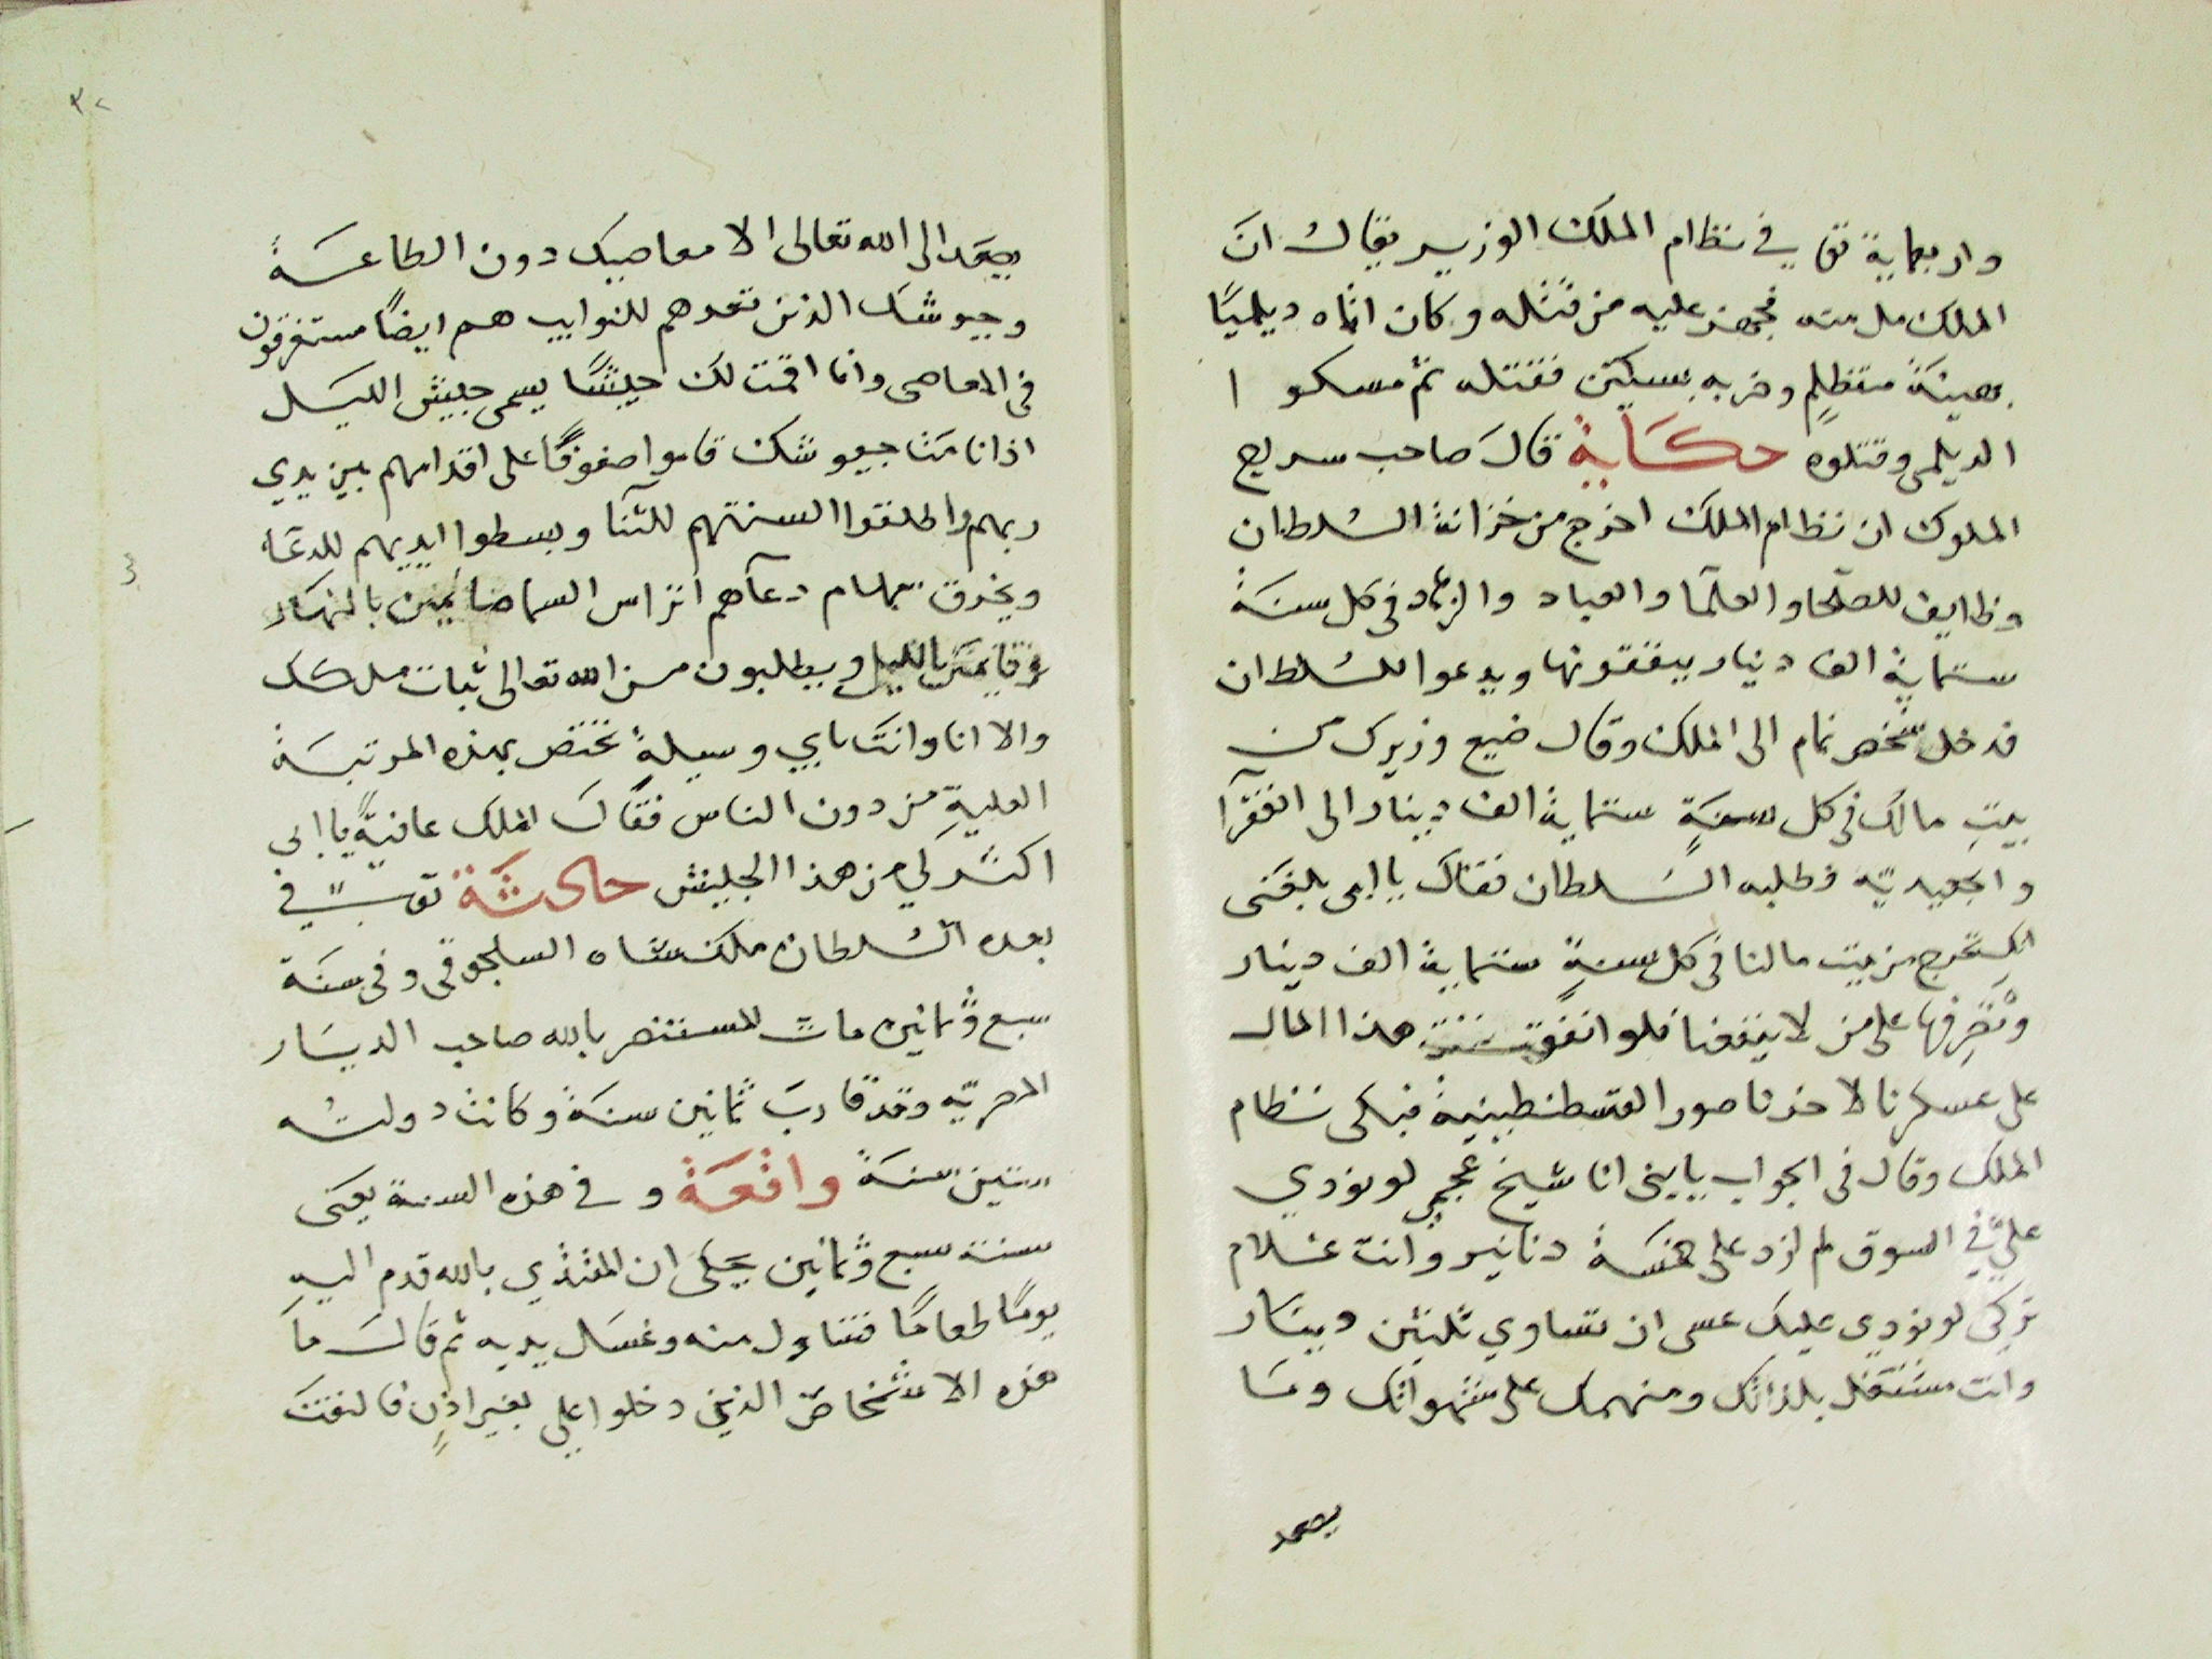 واربعماية توفي في نظام الملك الوزير يقال ان
الملك مل منه فجهز عليه من قتله وكان اتاه ديلميًا
بهيئة متظلمٍ وضربه بسكين فقتله ثم مسكوا
الديلمي وقتلوه حكاية قال صاحب سراج
الملوك ان نظام الملك اخرج من خزانة السلطان
وظايف للصلحا والعلما والعباد والزهاد في كل سنة
ستماية الف دينار ينفقونها ويدعوا للسلطان
فدخل شخص نمام الى الملك وقال ضيع وزيرك من
بيت مالك في كل سنةٍ ستماية الف دينار الى الفقرا
والجعيديّه فطلبه السلطان فقال يا ابى بلغنى
انك تخرج من بيت مالنا في كل سنةٍ ستماية الف دينار
وتصرفها على من لا ينفعنا فلو انفقت هذا المال
على عسكرنا لاخذنا صور القسطنطينية فبكى نظام
الملك وقال في الجواب يا بني انا شيخ عجمي لو نودي
عليّ في السوق لم ازد على خمسة دنانير وانت غلام
تركى لو نودي عليك عسى ان تساوي ثلثين دينار
وانت مشتغل بلذاتك ومنهمك على شهواتك وما
يصعد
٣٢
يصعد الى الله تعالى الا معاصيك دون الطاعة
وجيوشك الذين تعدهم للنوايب هم ايضًا مستغرقون
في المعاصى وانا اقمت لك جيشًا يسمى جيش الليل
اذا نامت جيوشك قاموا صفوفًا على اقدامهم بين يدي
ربهم واطلقوا السنتهم للثنا وبسطوا ايديهم للدعا
ويخرق سهام دعآهم اتراس السما صايمين بالنهار
وقايمين بالليل ويطلبون من الله تعالى ثبات ملكك
والا انا وانت باي وسيلةٍ نختص بهذه المرتبة
العلية من دون الناس فقال الملك عافيةً يا ابي
اكثر لي من هذا الجيش حادثة توفي في
بعده السلطان ملك شاه السلجوقى وفى سنة
سبع وثمانين مات المستنصر بالله صاحب الديار
المصريّه وقد قارب ثمانين سنة وكانت دولته
ستين سنة واقعة وفي هذه السنة يعنى
سنة سبع وثمانين يحكى ان المقتدي بالله قدم اليه
يومًا طعامًا فتناول منه وغسل يديه ثم قال ما
هذه الاشخاص الذين دخلوا علي بغير اذنٍ فالتفت